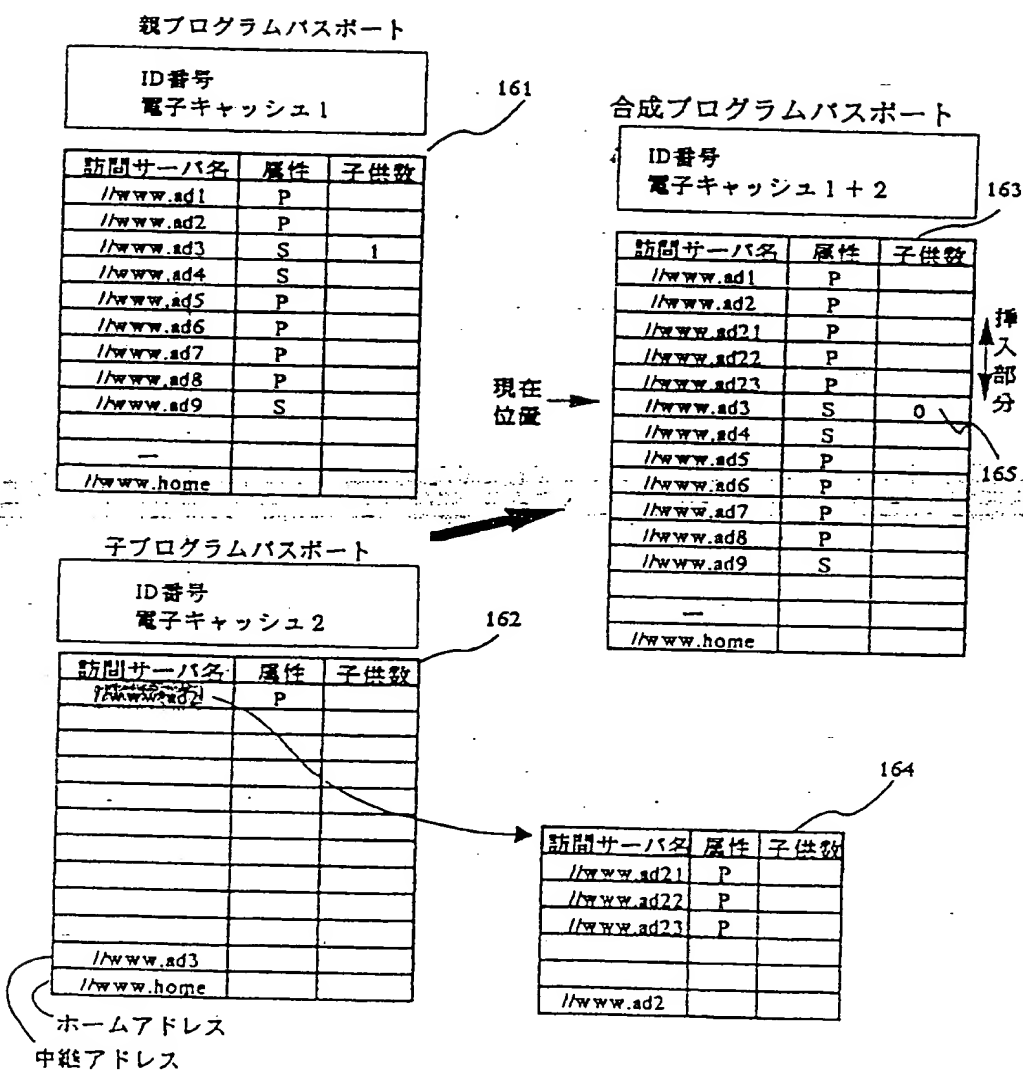 親プログラムパスポート
ID番号
電子キャッシュ1
161
訪問サーバ名 属性 子供数
//www.ad1 P
//www.ad2 P
//www.ad3 S 1
//www.ad4 S
//www.ad5 P
//www.ad6 P
//www.ad7 P
//www.ad8 P
//www.ad9 S
—
//www.home
子プログラムパスポート
ID番号
電子キャッシュ2
162
訪問サーバ名 属性 子供数
P
//www.ad3
//www.home
ホームアドレス
中継アドレス
合成プログラムパスポート
ID番号
電子キャッシュ1+2
163
訪問サーバ名 属性 子供数
//www.ad1 P
//www.ad2 P
//www.ad21 P
//www.ad22 P
//www.ad23 P
//www.ad3 S 0
//www.ad4 S
//www.ad5 P
//www.ad6 P
//www.ad7 P
//www.ad8 P
//www.ad9 S
—
//www.home
挿入部分
現在
位置
165
164
訪問サーバ名 属性 子供数
//www.ad21 P
//www.ad22 P
//www.ad23 P
//www.ad2